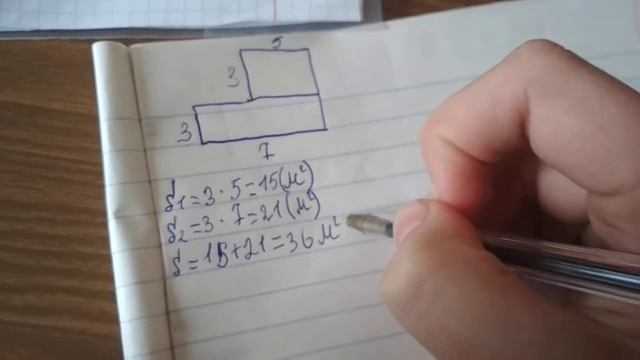 5
3
3
7
S₁=3·5=15(м²)
S₂=3·7=21(м²)
S=15+21=36м²